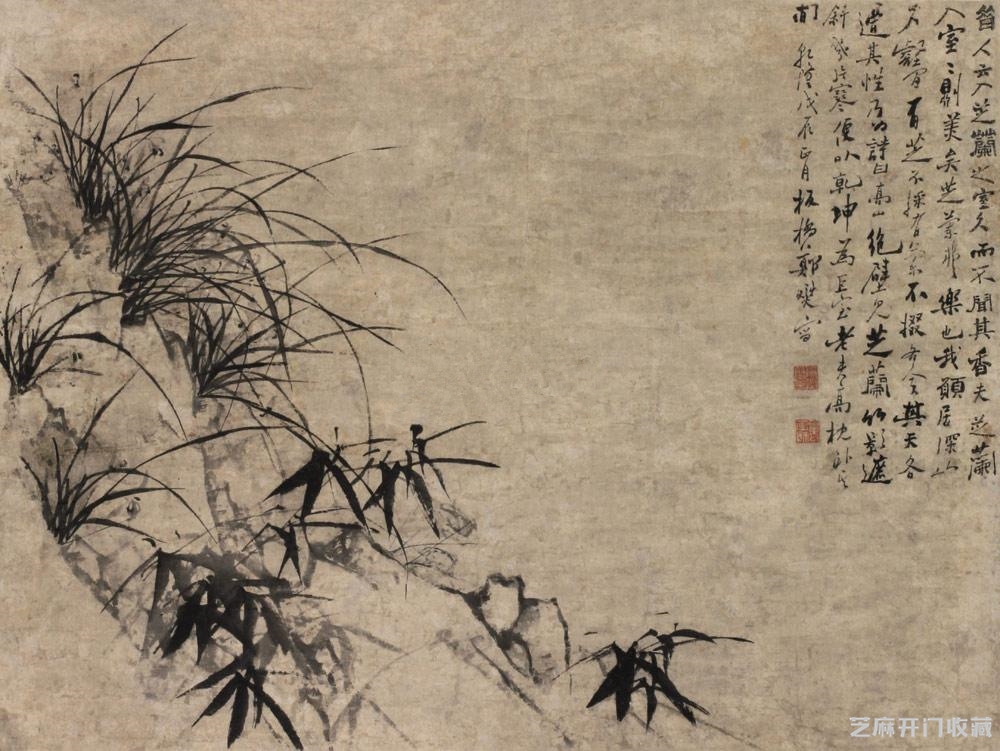 昔人云入芝蘭之室久而不聞其香夫芝蘭
入室室則美矣芝蘭非樂也我願居深山
有芝不採有蘭不掇各全其天各
遂其性乃為詩曰高山絕壁見芝蘭竹影遮
斜幾片寒便以乾坤為巨室老夫高枕臥其
間 乾隆戊辰正月板橋鄭燮寫
芝麻开门收藏